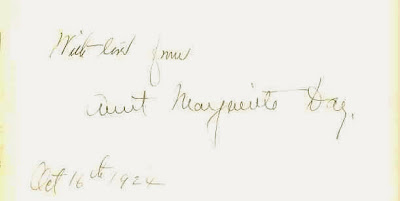 With love from
Aunt Marguerite Day.
Oct 16th 1924